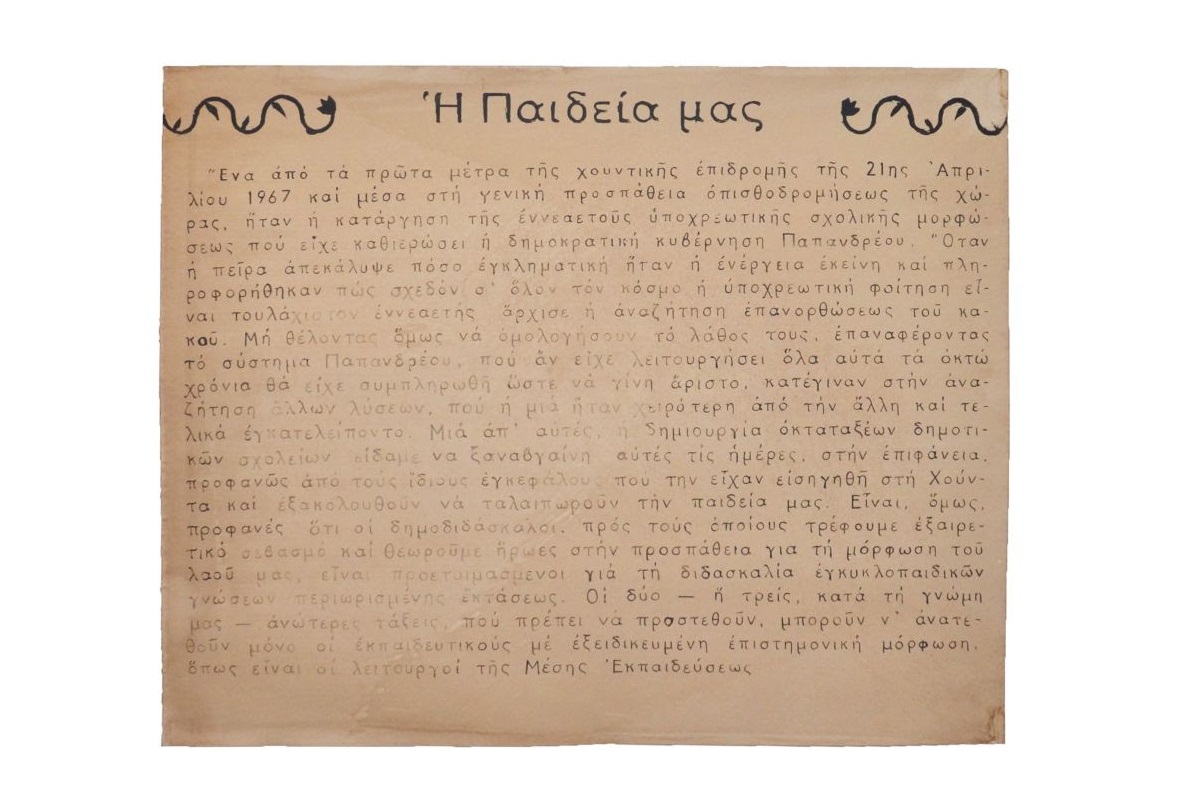 Ἡ Παιδεία μας
Ἕνα ἀπό τά πρῶτα μέτρα τῆς χουντικῆς ἐπιδρομῆς τῆς 21ης Ἀπρι-
λίου 1967 καί μέσα στή γενική προσπάθεια ὀπισθοδρομήσεως τῆς χώ-
ρας, ἦταν ἡ κατάργηση τῆς ἐννεαετοῦς ὑποχρεωτικῆς σχολικῆς μορφώ-
σεως πού εἶχε καθιερώσει ἡ δημοκρατική κυβέρνηση Παπανδρέου. Ὅταν
ἡ πεῖρα ἀπεκάλυψε πόσο ἐγκληματική ἦταν ἡ ἐνέργεια ἐκείνη καί πλη-
ροφορήθηκαν πώς σχεδόν σ' ὅλον τόν κόσμο ἡ ὑποχρεωτική φοίτηση εἶ-
ναι τουλάχιστον ἐννεαετής ἄρχισε ἡ ἀναζήτηση ἐπανορθώσεως τοῦ κα-
κοῦ. Μή θέλοντας ὅμως νά ὁμολογήσουν τό λάθος τους, ἐπαναφέροντας
τό σύστημα Παπανδρέου, πού ἄν εἶχε λειτουργήσει ὅλα αὐτά τά ὀκτώ
χρόνια θά εἶχε συμπληρωθῆ ὥστε νά γίνη ἄριστο, κατέγιναν στήν ἀνα-
ζήτηση ἄλλων λύσεων, πού ἡ μιά ἦταν χειρότερη ἀπό τήν ἄλλη καί τε-
λικά ἐγκατελείποντο. Μιά ἀπ' αὐτές, ἡ δημιουργία ὀκταταξέων δημοτι-
κῶν σχολείων εἴδαμε να ξαναβγαίνη αὐτές τίς ἡμέρες, στήν ἐπιφάνεια,
προφανῶς ἀπό τούς ἴδιους ἐγκεφάλους που την εἶχαν εἰσηγηθῆ στή Χούν-
τα καί ἐξακολουθοῦν νά ταλαιπωροῦν τήν παιδεία μας. Εἶναι, ὅμως,
προφανές ὅτι οἱ δημοδιδάσκαλοι, πρός τούς ὁποίους τρέφουμε ἐξαιρε-
τικό σεβασμό καί θεωροῦμε ἥρωες στήν προσπάθεια για τή μόρφωση τοῦ
λαοῦ μας, εἶναι προετοιμασμενοι γιά τή διδασκαλία ἐγκυκλοπαιδικῶν
γνώσεων περιωρισμένης ἐκτάσεως. Οἱ δύο — ἤ τρείς, κατά τή γνώμη
μας — ἀνώτερες τάξεις, πού πρέπει νά προστεθοῦν, μποροῦν ν' ἀνατε-
θοῦν μόνο οἱ ἐκπαιδευτικούς μέ ἐξειδικευμένη ἐπιστημονική μόρφωση,
ὅπως εἶναι οἱ λειτουργοί τῆς Μέσης Ἐκπαιδεύσεως